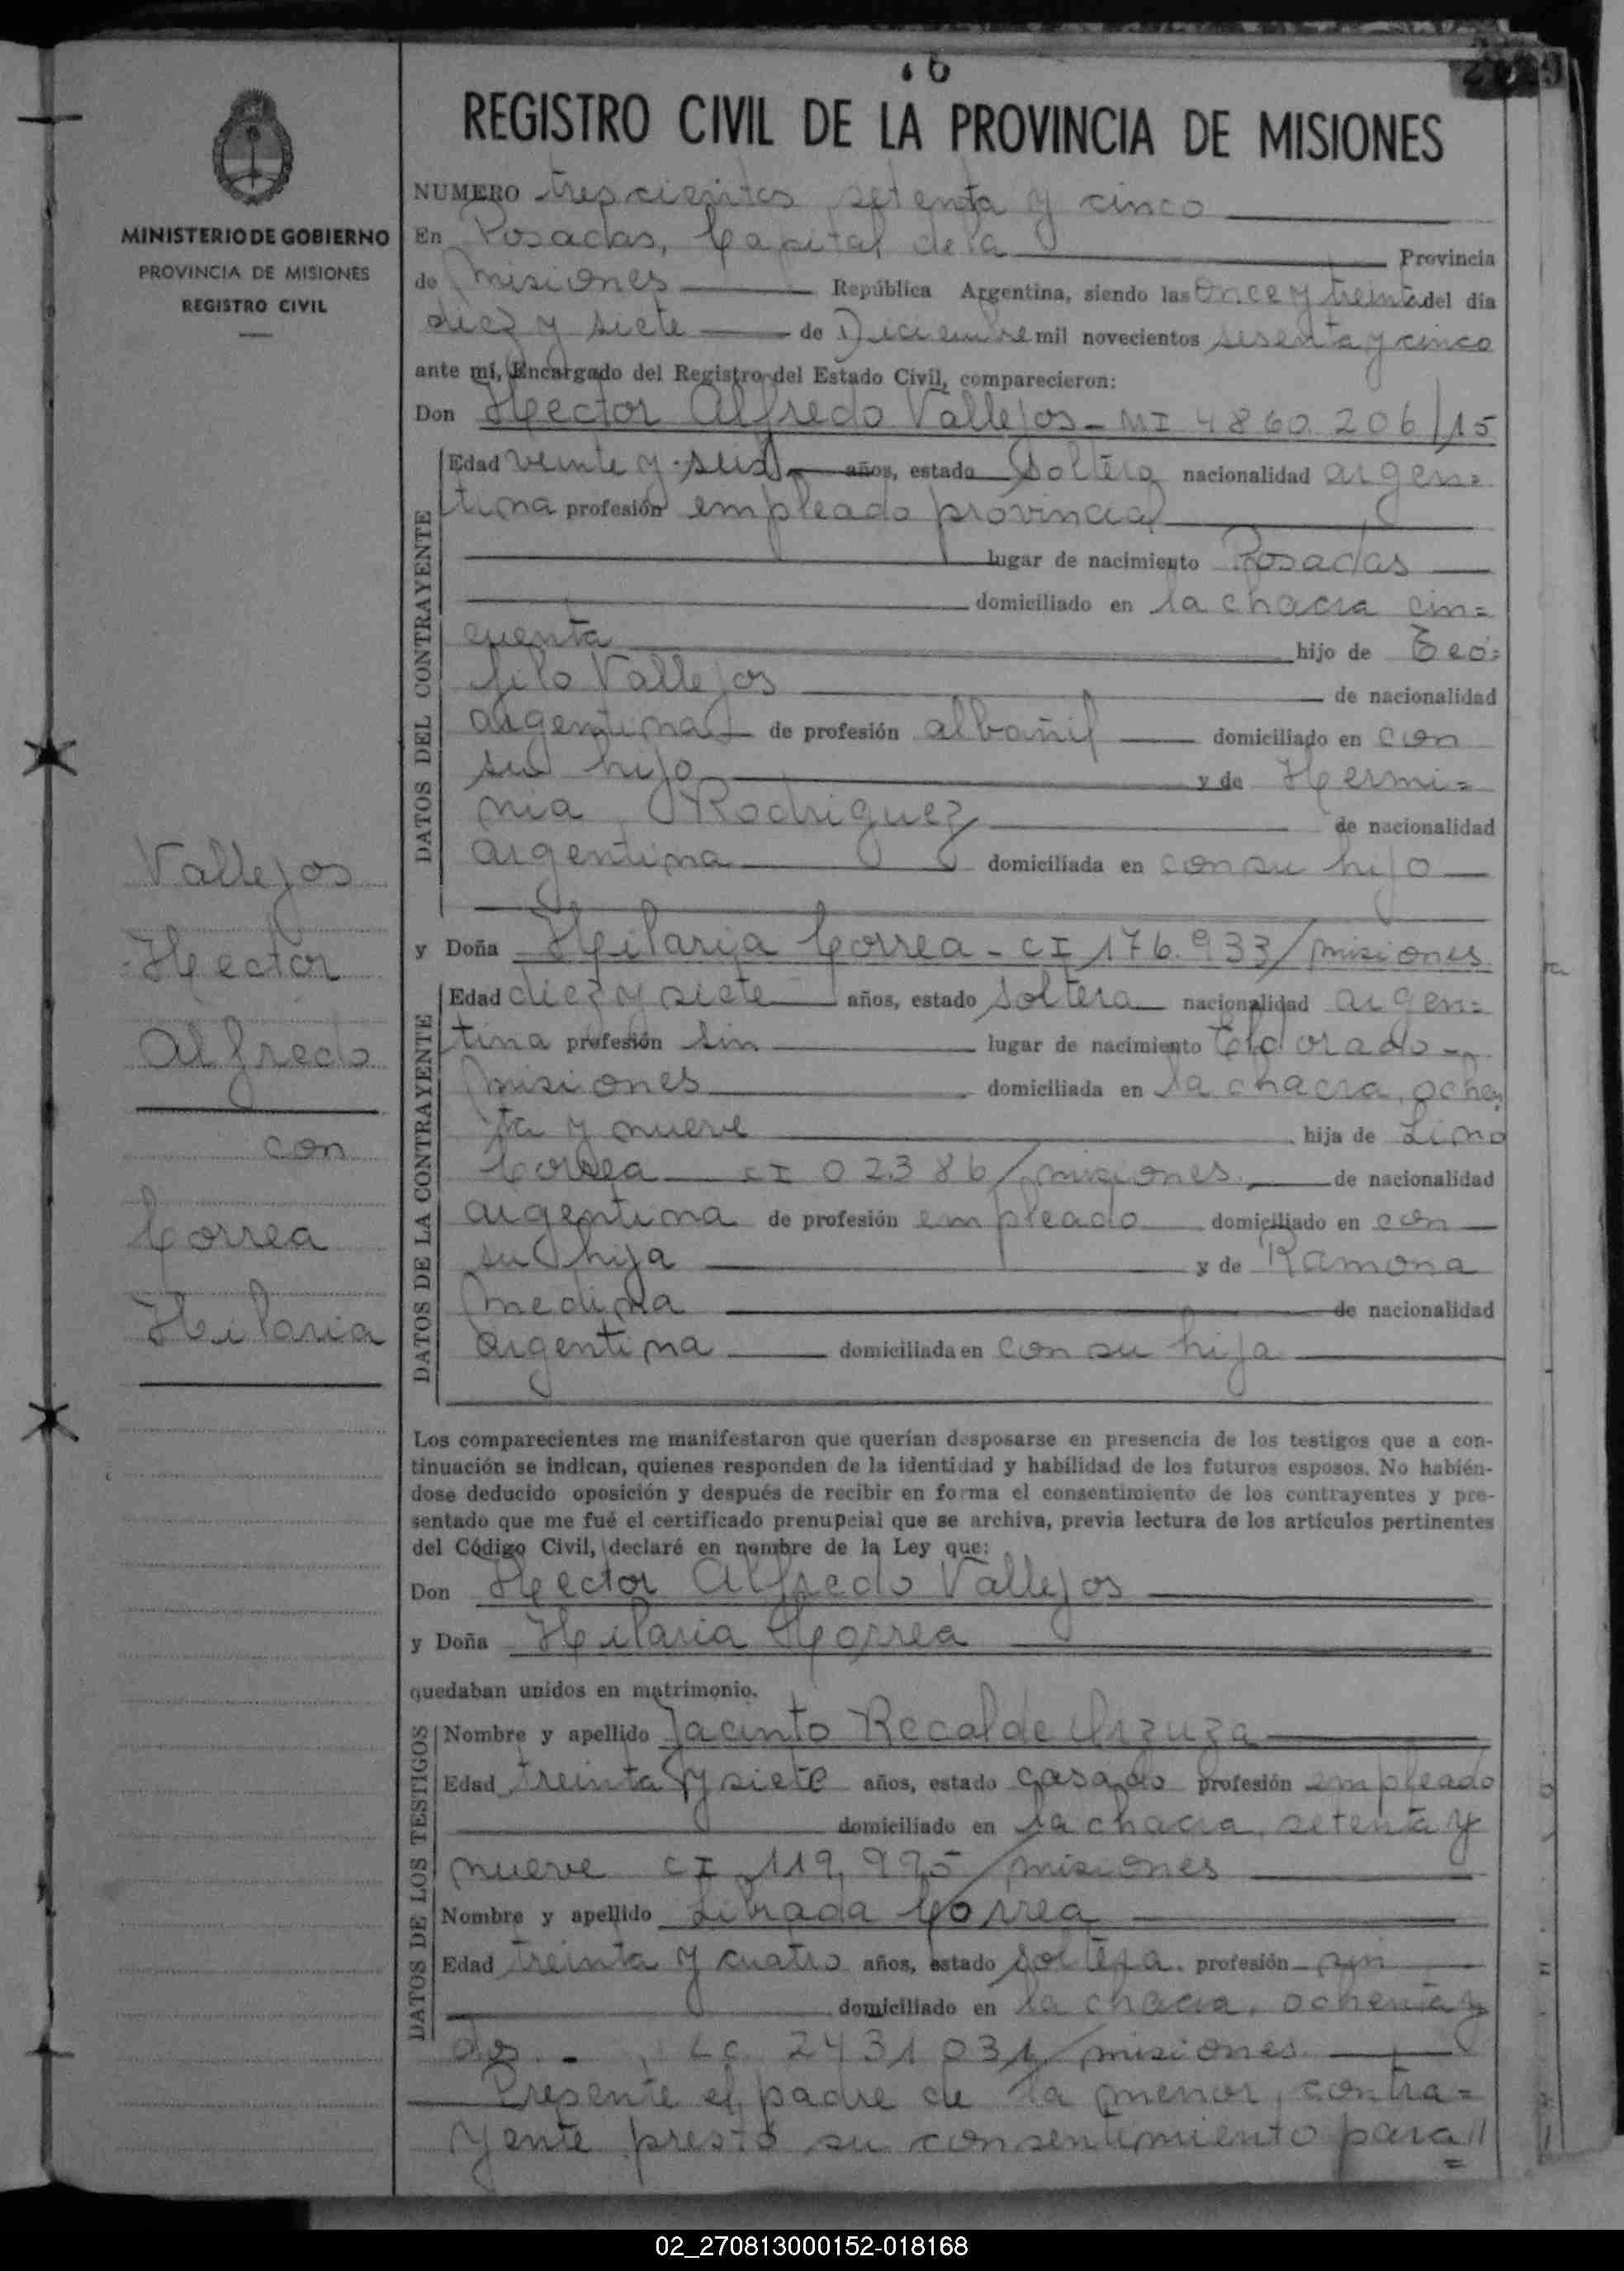 REGISTRO CIVIL DE LA PROVINCIA DE MISIONES
MINISTERIO DE GOBIERNO
PROVINCIA DE MISIONES
REGISTRO CIVIL
Vallejos
Hector
Alfredo
con
Correa
Hilaria
NUMERO trescientos setenta y cinco
En Posadas, Capital de la Provincia
de Misiones República Argentina, siendo las once y treinta del día
diez y siete de Diciembre mil novecientos sesenta y cinco
ante mí, Encargado del Registro del Estado Civil, comparecieron:
Don Hector Alfredo Vallejos - MI 4860.206/15
DATOS DEL CONTRAYENTE
Edad veinte y seis años, estado Soltero nacionalidad argen=
tina profesión empleado provincial
lugar de nacimiento Posadas
domiciliado en la chacra cin=
cuenta hijo de Teó=
filo Vallejos de nacionalidad
argentina de profesión albañil domiciliado en con
su hijo y de Hermi=
nia Rodriguez de nacionalidad
argentina domiciliada en con su hijo
y Doña Hilaria Correa - CI 176.933/misiones
DATOS DE LA CONTRAYENTE
Edad diez y siete años, estado soltera nacionalidad argen=
tina profesión sin lugar de nacimiento Eldorado -
misiones domiciliada en la chacra, ochen
ta y nueve hija de Lino
Correa CI 02386/misiones de nacionalidad
argentina de profesión empleado domiciliado en con
su hija y de Ramona
medina de nacionalidad
argentina domiciliada en con su hija
Los comparecientes me manifestaron que querían desposarse en presencia de los testigos que a con-
tinuación se indican, quienes responden de la identidad y habilidad de los futuros esposos. No habién-
dose deducido oposición y después de recibir en forma el consentimiento de los contrayentes y pre-
sentado que me fué el certificado prenupcial que se archiva, previa lectura de los artículos pertinentes
del Código Civil, declaré en nombre de la Ley que:
Don Hector Alfredo Vallejos
y Doña Hilaria Correa
quedaban unidos en matrimonio.
DATOS DE LOS TESTIGOS
Nombre y apellido Jacinto Recalde Urzuza
Edad treinta y siete años, estado casado profesión empleado
domiciliado en la chacra, setenta y
nueve CI 119.995/misiones
Nombre y apellido Librada Correa
Edad treinta y cuatro años, estado soltera profesión sin
domiciliado en la chacra, ochenta y
dos. - LC 2431031/misiones
Presente el padre de la menor, contra=
yente prestó su consentimiento para//
02_270813000152-018168